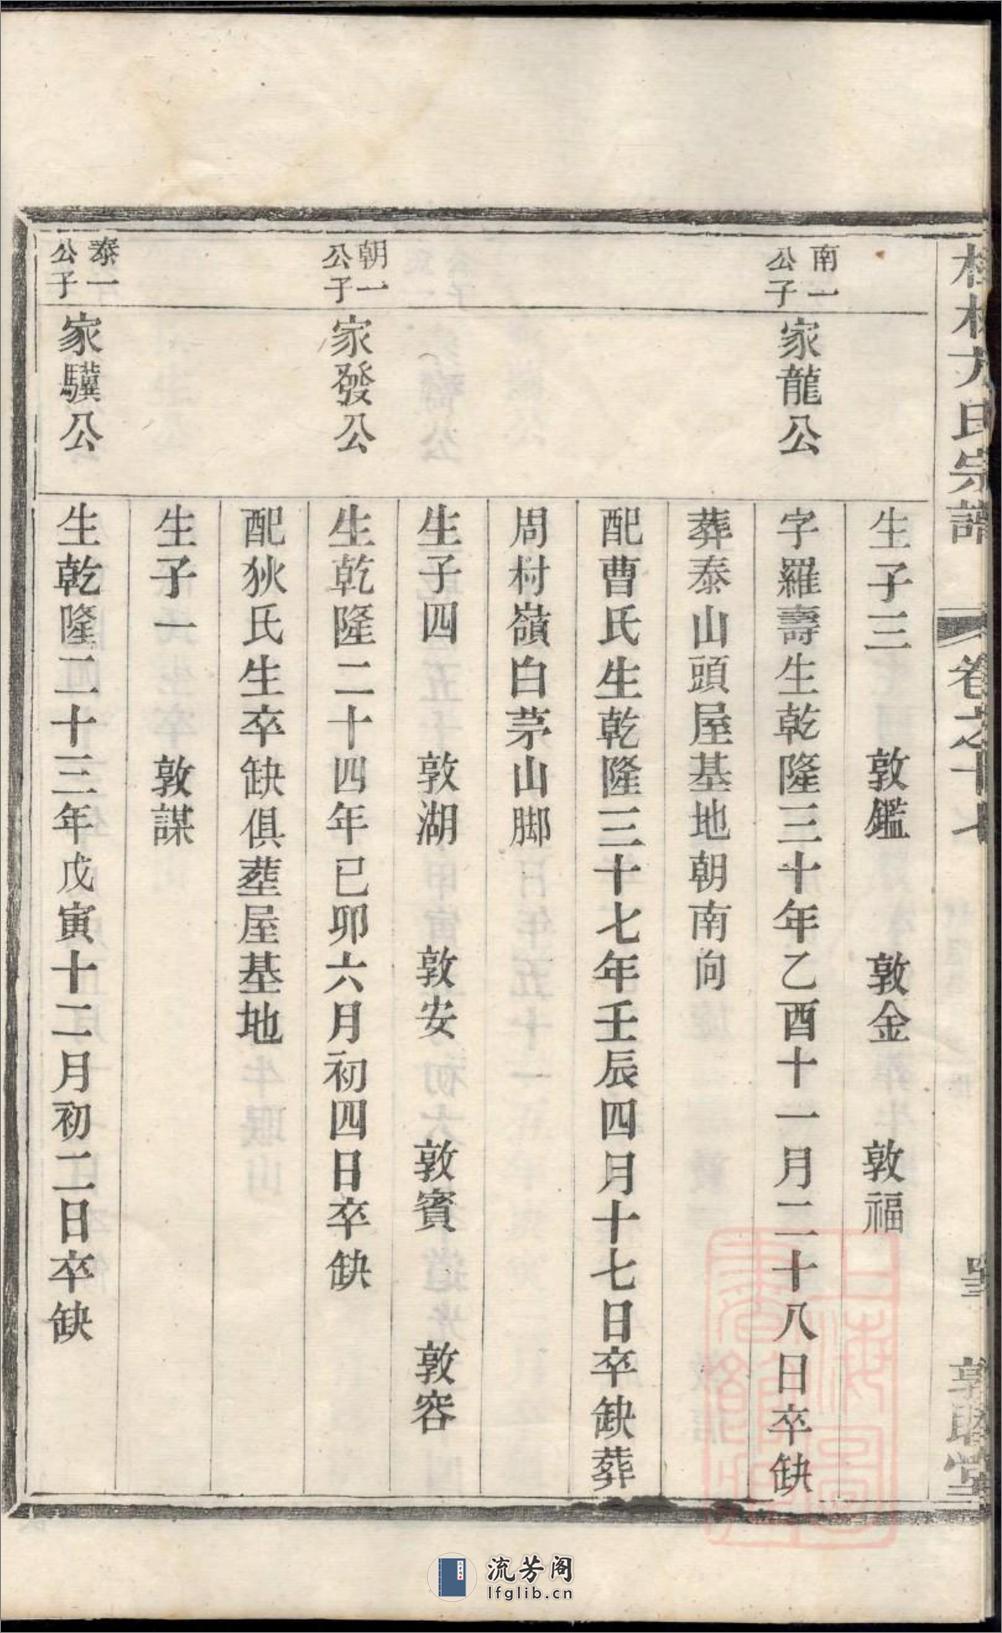 氏宗譜
卷之十七
敦睦堂
生子三 敦鑑 敦金 敦福
南一公子
家龍公
字羅壽生乾隆三十年乙酉十一月二十八日卒缺
葬泰山頭屋基地朝南向
配曹氏生乾隆三十七年壬辰四月十七日卒缺葬
周村嶺白茅山脚
生子四 敦湖 敦安 敦賓 敦容
朝一公子
家發公
生乾隆二十四年已卯六月初四日卒缺
配狄氏生卒缺俱塟屋基地
生子一 敦謀
泰一公子
家驥公
生乾隆二十三年戊寅十二月初二日卒缺
流芳阁
lfglib.cn